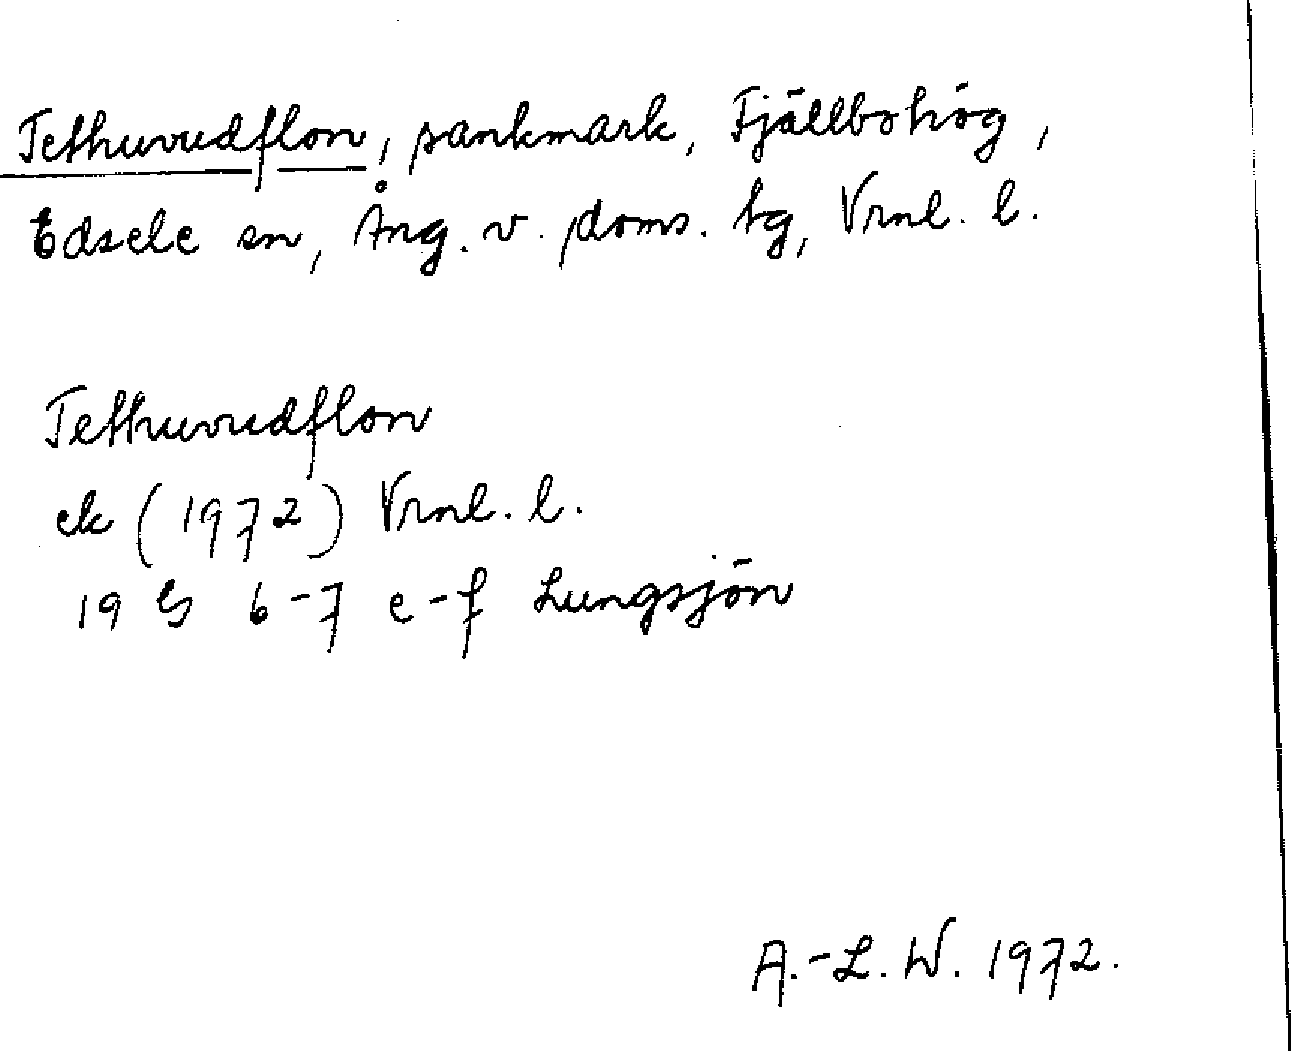 Tethuvudflon, sankmark, Fjällbohög,
Edsele sn, Ång. v. doms. tg, Vrnl. l.
Tethuvudflon
ek (1972) Vrnl. l.
19 G 6-7 e-f Lungsjön
A.-L. W. 1972.